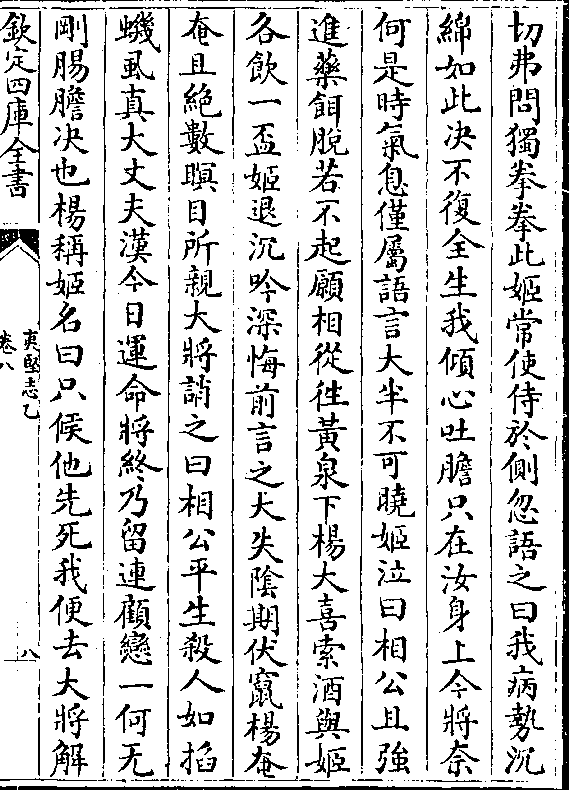 切弗問獨拳拳此姬常使侍於側忽語之曰我病勢沉
綿如此决不復全生我傾心吐膽只在汝身上今將奈
何是時氣息僅屬語言大半不可曉姬泣曰相公且強
進藥餌脫若不起願相從往黃泉下楊大喜索酒與姬
各飲一盃姬退沉吟深悔前言之大失陰期伏竄楊奄
奄且絕數瞑目所親大將誚之曰相公平生殺人如掐
蟣虱真大丈夫漢今日運命將終乃留連顧戀一何无
剛腸膽决也楊稱姬名曰只候他先死我便去大將解
欽定四庫全書
夷堅志乙
卷八
八